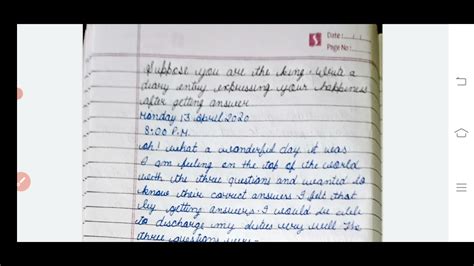 Date: / /
Page No:
Suppose you are the king. Write a
diary entry expressing your happiness
after getting answer
Monday 13 April 2020
8:00 P.M.
oh! what a wonderful day it was
I am feling on the top of the world
with the three questions and wanted to
know their correct answers I fell that
by getting answers. I would be able
to discharge my duties very well The
three questions were:-